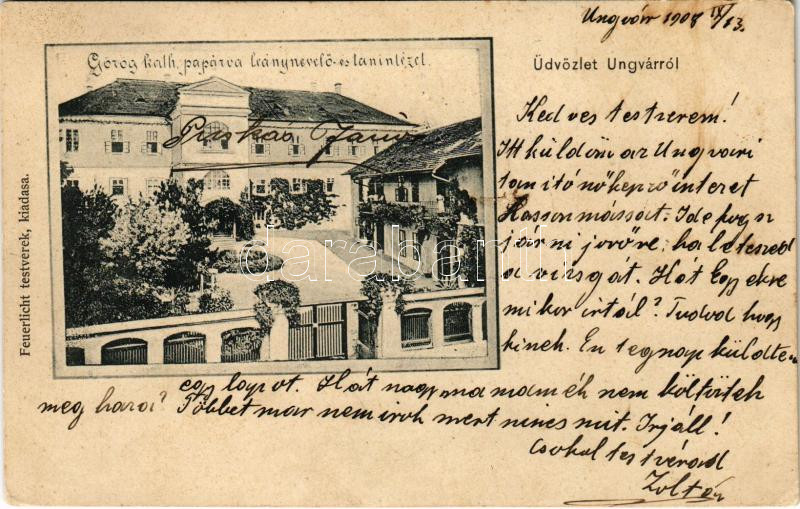 Ungvár 1908 IX/13.
Görög kath. papárva leánynevelő- és tanintézet.
Üdvözlet Ungvárról
Feuerlicht testverek, kiadása.
Kedves testverem!
Itt küldöm az Ungvari
tanitónőképző interet
Hassonmássát. Ide fogsz
járni jövőre, ha leteszed
a vizsgát. Hát Egyekre
mikor irtál? Tudod hogy
kinek. En tegnap küldtem
egy lapot. Hát nagymamamék nem költöztek
meg haza? Többet mar nem irok mert nincs mit. Irjáll!
Csokol testvéred
Zoltán
darabanth